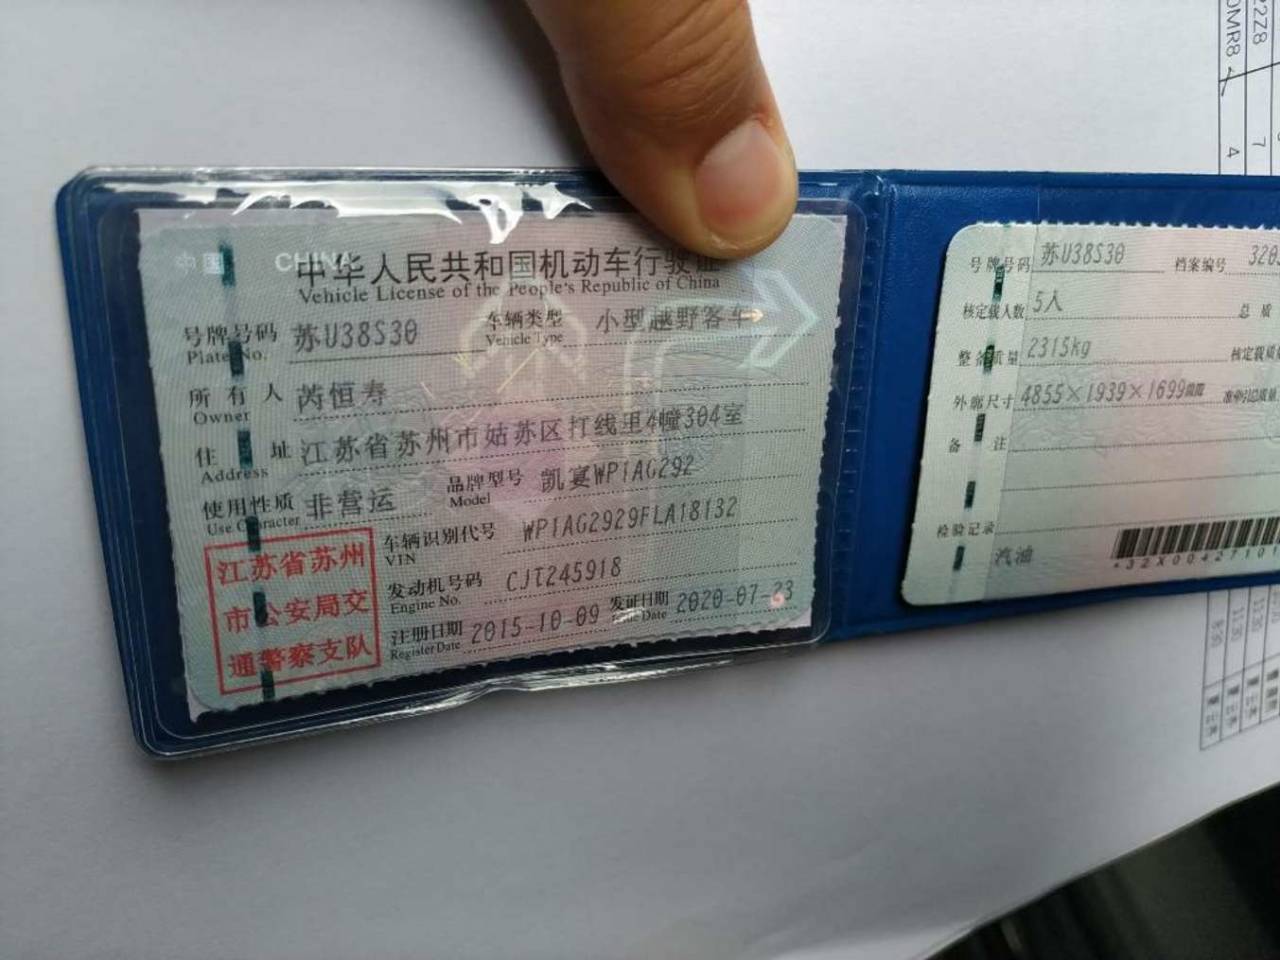 中国 CHINA
中华人民共和国机动车行驶证
Vehicle License of the People's Republic of China
号牌号码 苏U38S30 车辆类型 小型越野客车
Plate No. Vehicle Type
所有人 芮恒寿
Owner
住址 江苏省苏州市姑苏区打线里4幢304室
Address
使用性质 非营运 品牌型号 凯宴WP1AG292
Use Character Model
江苏省苏州
市公安局交
通警察支队
车辆识别代号 WP1AG2929FLA18132
VIN
发动机号码 CJT245918
Engine No.
注册日期 2015-10-09 发证日期 2020-07-23
Register Date Issue Date
号牌号码 苏U38S30 档案编号 320
核定载人数 5人 总质
整备质量 2315kg 核定载质
外廓尺寸 4855×1939×1699
备注
检验记录
汽油
*32X0042710
22Z8
0MR8
7
4